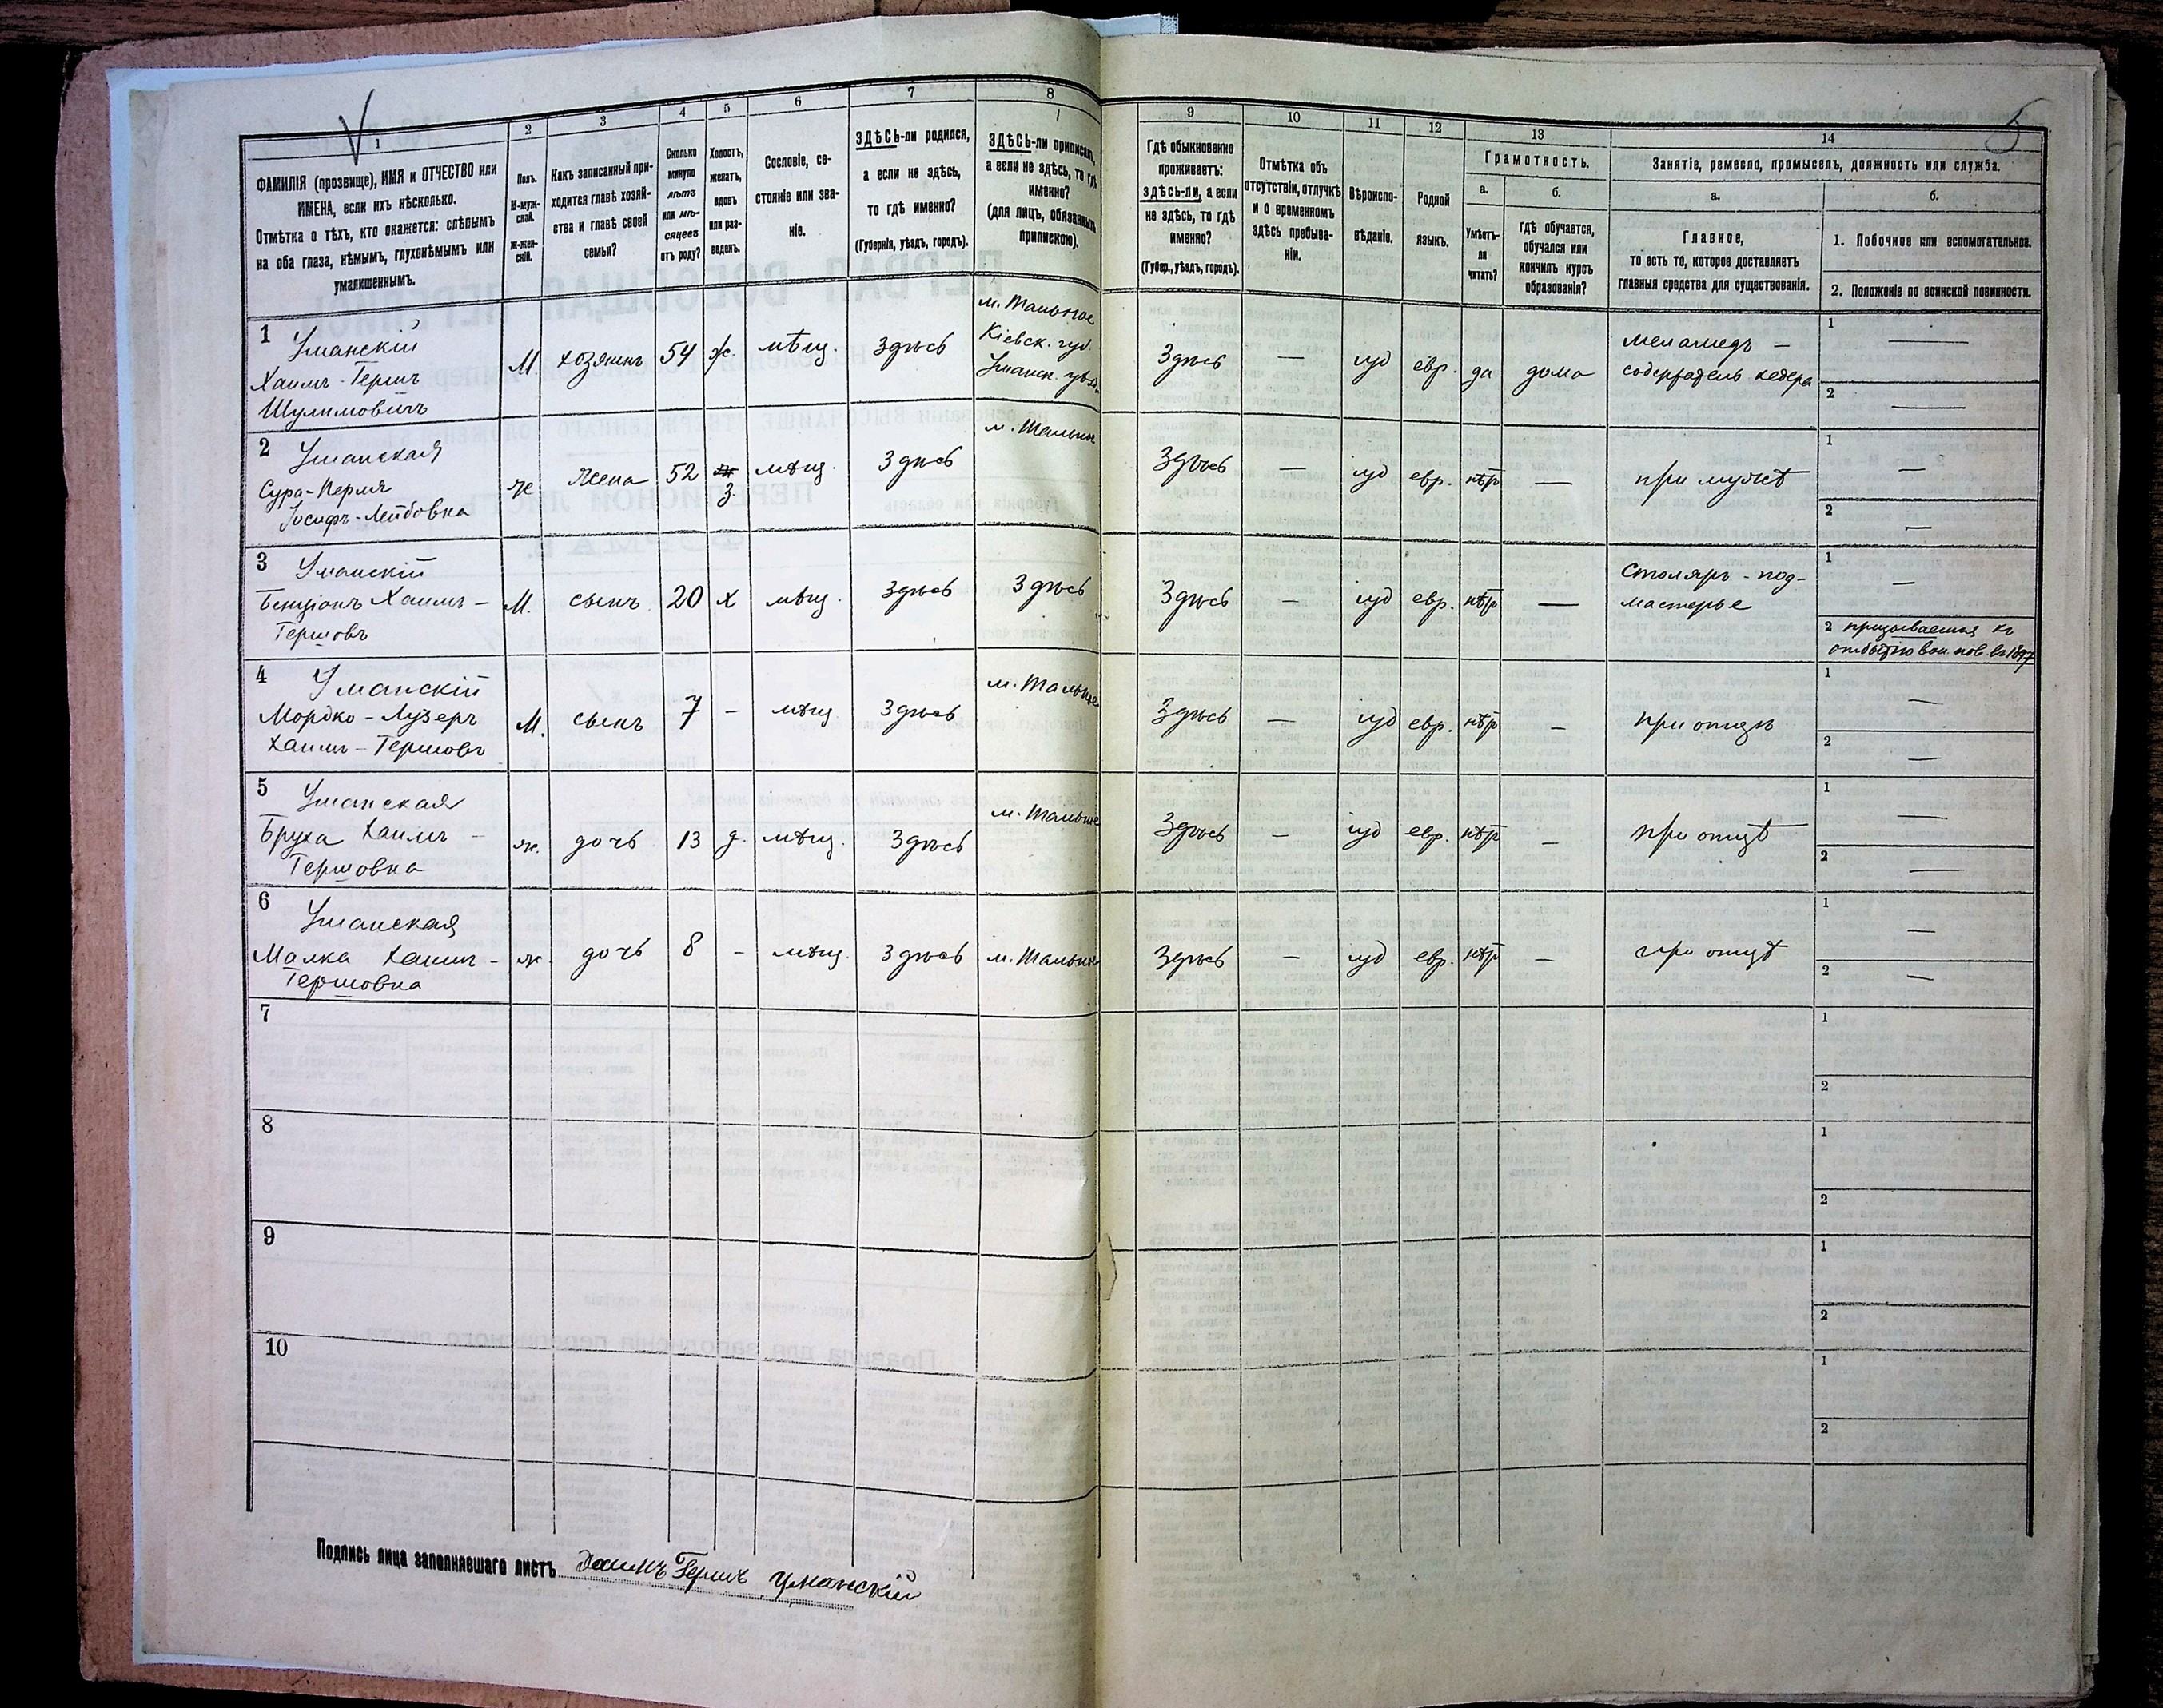 V
5
1
2
3
4
5
6
7
8
9
10
11
12
13
14
ФАМИЛІЯ (прозвище), ИМЯ и ОТЧЕСТВО или
ИМЕНА, если ихъ нѣсколько.
Отмѣтка о тѣхъ, кто окажется: слѣпымъ
на оба глаза, нѣмымъ, глухонѣмымъ или
умалишеннымъ.
Полъ.
М-муж-
ской.
Ж-жен-
скій.
Какъ записанный при-
ходится главѣ хозяй-
ства и главѣ своей
семьи?
Сколько
минуло
лѣтъ
или мѣ-
сяцевъ
отъ роду?
Холостъ,
женатъ,
вдовъ
или раз-
веденъ.
Сословіе, со-
стояніе или зва-
ніе.
ЗДѢСЬ-ли родился,
а если не здѣсь,
то гдѣ именно?
(Губернія, уѣздъ, городъ).
ЗДѢСЬ-ли приписанъ,
а если не здѣсь, то гдѣ
именно?
(для лицъ, обязанныхъ
припискою).
Гдѣ обыкновенно
проживаетъ:
здѣсь-ли, а если
не здѣсь, то гдѣ
именно?
(Губер., уѣздъ, городъ).
Отмѣтка объ
отсутствіи, отлучкѣ
и о временномъ
здѣсь пребыва-
ніи.
Вѣроиспо-
вѣданіе.
Родной
языкъ.
Грамотность.
а.
б.
Умѣетъ-
ли
читать?
Гдѣ обучается,
обучался или
кончилъ курсъ
образованія?
Занятіе, ремесло, промыселъ, должность или служба.
а.
б.
Главное,
то есть то, которое доставляетъ
главныя средства для существованія.
1. Побочное или вспомогательное.
2. Положеніе по воинской повинности.
1 Уманскій
Хаимъ-Гершъ
Шулимовичъ
М. хозяинъ 54 ж. мѣщ. Здѣсь
м. Тальное
Кіевск. губ.
Уманск. уѣзд.
Здѣсь — іуд евр. да дома
меламедъ —
содержатель хедера
1 —
2 —
2 Уманская
Сура-Перля
Іосифъ-Лейбовна
ж жена 52 З. мѣщ. Здѣсь м. Тальное
Здѣсь — іуд евр. нѣтъ — при мужѣ
1 —
2 —
3 Уманскій
Бенціонъ Хаимъ-
Гершовъ
М. сынъ 20 х мѣщ. Здѣсь Здѣсь
Здѣсь — іуд евр. нѣтъ —
Столяръ - под-
мастерье
1 —
2 призывается къ
отбытію вои. пов. въ 1897
4 Уманскій
Мордко-Лузеръ
Хаимъ-Гершовъ
М. сынъ 7 — мѣщ Здѣсь м. Тальное
Здѣсь — іуд евр. нѣтъ — при отцѣ
1 —
2 —
5 Уманская
Бруха Хаимъ-
Гершовна
ж. дочь 13 д. мѣщ. Здѣсь м. Тальное
Здѣсь — іуд евр. нѣтъ — при отцѣ
1 —
2 —
6 Уманская
Малка Хаимъ-
Гершовна
ж. дочь 8 — мѣщ. Здѣсь м. Тальное
Здѣсь — іуд евр. нѣтъ — при отцѣ
1 —
2 —
7
1
2
8
1
2
9
1
2
10
1
2
Подпись лица заполнявшаго листъ Хаимъ Гершъ Уманскій